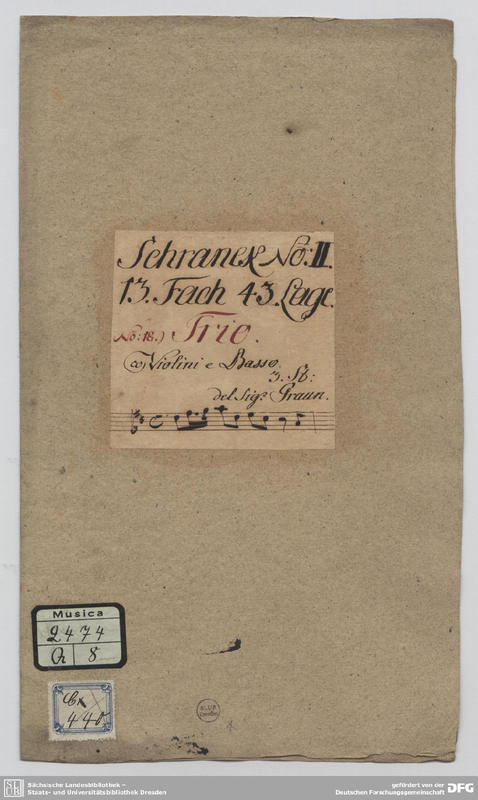 Schranck No: II.
13. Fach 43. Lage.
No: 18.) Trio.
co Violini e Basso.
3. St:
del Sigr. Graun.
Musica
2474
Q 8
Cx
440
SLUB
Dresden
Sächsische Landesbibliothek –
Staats- und Universitätsbibliothek Dresden
gefördert von der
Deutschen Forschungsgemeinschaft
DFG